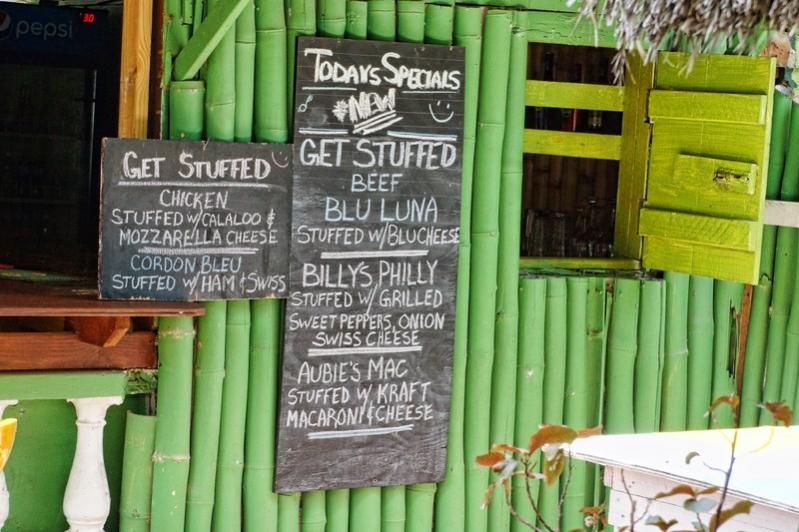 pepsi
30
GET STUFFED
CHICKEN
STUFFED W/CALALOO &
MOZZARELLA CHEESE
CORDON BLEU
STUFFED W/ HAM & SWISS
TODAYS SPECIALS
*NEW
GET STUFFED
BEEF
BLU LUNA
STUFFED W/BLUCHEESE
BILLY'S PHILLY
STUFFED W/ GRILLED
SWEET PEPPERS, ONION
SWISS CHEESE
AUBIE'S MAC
STUFFED W/ KRAFT
MACARONI & CHEESE